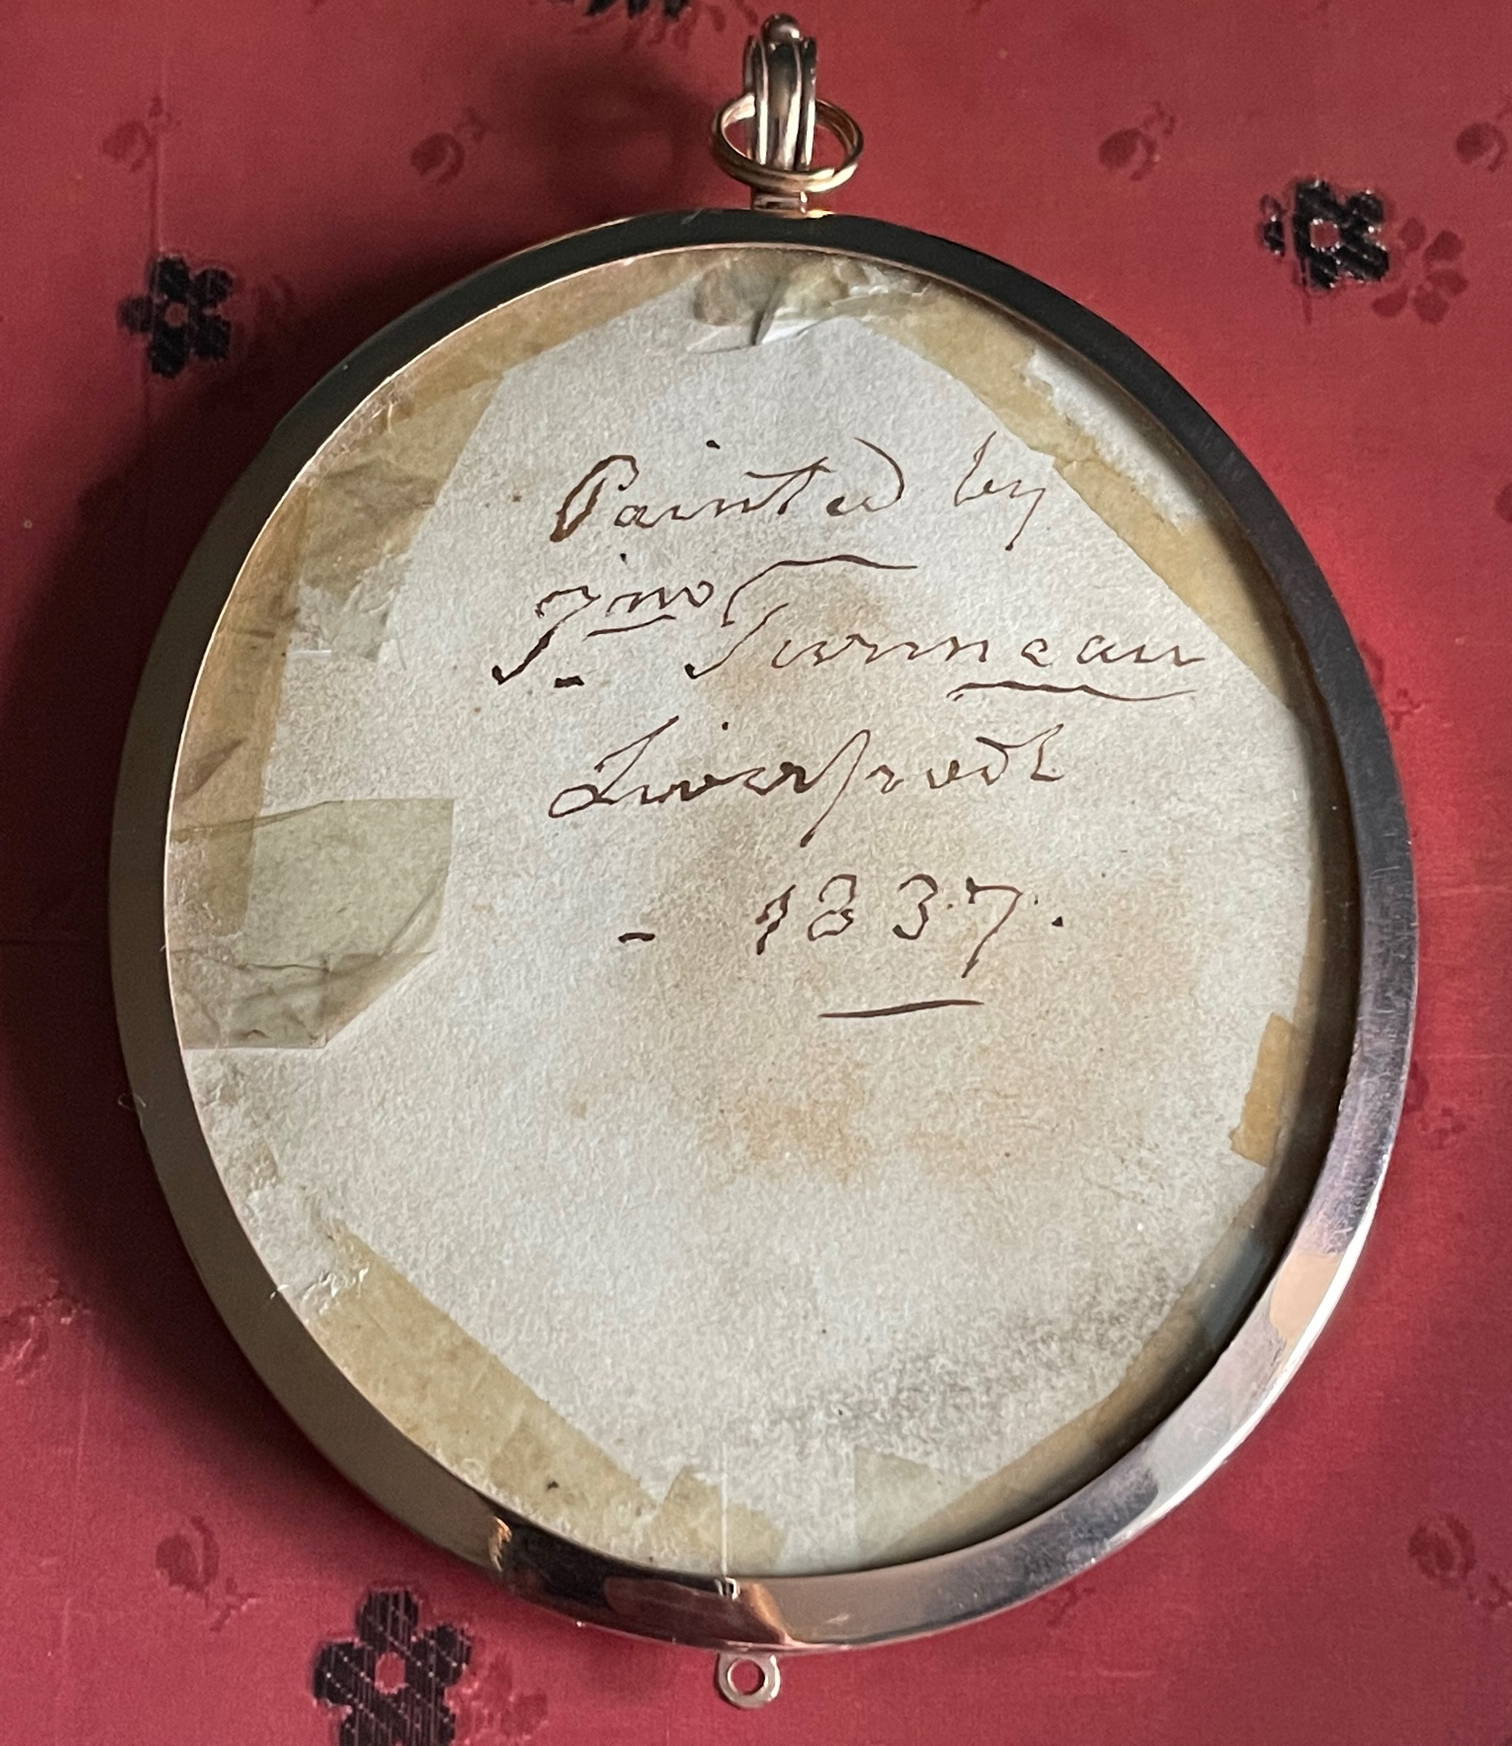 Painted by
Jno Turmeau
Liverpool
- 1837.